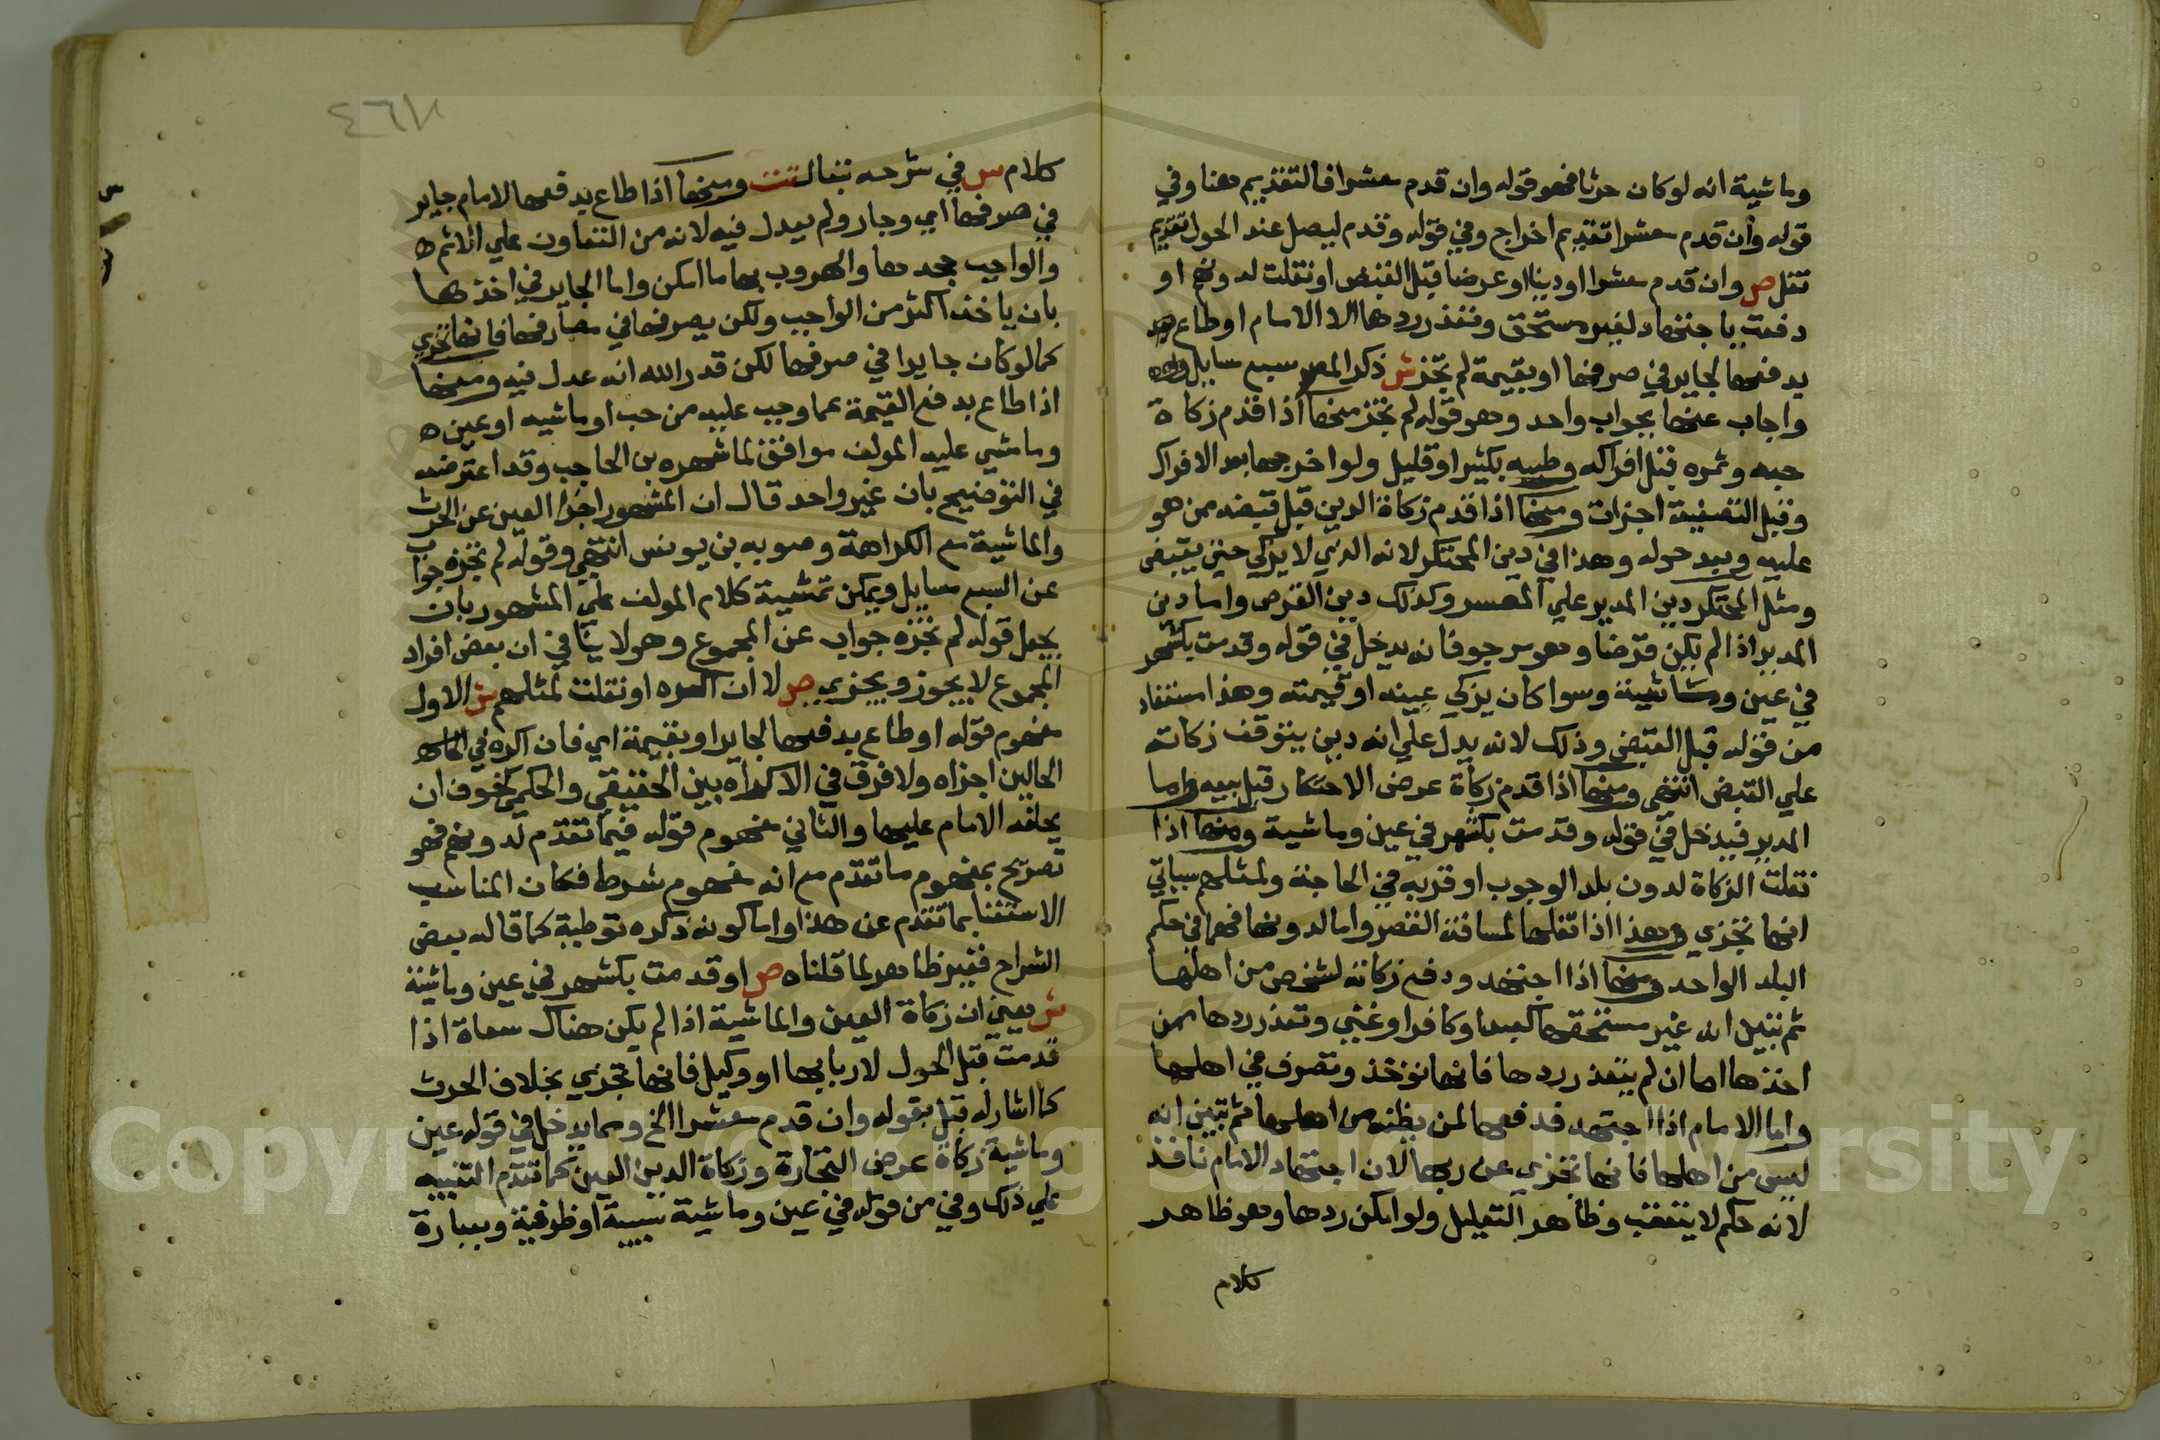 وماشية انه لو كان حرثا فهو قوله وان قدم معشرا فالتقديم هنا وفي
قوله وان قدم معشرا تقديم اخراج وفي قوله وقدم ليصل عند الحول تقديم
نقل ص وان قدم معشرا او دينا او عرضا قبل القبض او نقلت له ونهم او
دفعت باجتهاد لغير مستحق وتعذر ردها الا الامام او طاع
بدفعها لجاير في صرفها او بقيمة لم تجز ش ذكر المص سبع مسايل
واجاب عنها بجواب واحد وهو قوله لم تجز منها اذا قدم زكاة
حبه وثمره قبل افراكه وطيبه بكثير او قليل ولو اخرجها بعد الافراك
وقبل التصفية اجزات ومنها اذا قدم زكاة الدين قبل قبضه من هو
عليه وبعد حوله وهذا في دين المحتكر لانه الذي لا يزكي حتى يقبض
ومثل المحتكر دين المدير علي المعسر وكذلك دين القرض واما دين
المدير اذا لم يكن قرضا وهو مرجو فانه يدخل في قوله وقدمت بكشهر
في عين وماشية وسوا كان يزكي عينه او قيمته وهذا مستفاد
من قوله قبل القبض وذلك لانه يدل علي انه دين يتوقف زكاته
علي القبض انتهي ومنها اذا قدم زكاة عرض الاحتكار قبل بيعه واما
المدير فيدخل في قوله وقدمت بكشهر في عين وماشية ومنها اذا
نقلت الزكاة لدون بلد الوجوب او قربه في الحاجة ولمثلهم سياتي
انها تجزي وهذا اذا نقلها لمسافة القصر واما لدونها فهما في حكم
البلد الواحد ومنها اذا اجتهد ودفع زكاته لشخص من اهلها
ثم تبين انه غير مستحقها كعبد او كافر او غني وتعذر ردها ممن
اخذها اما ان لم يتعذر ردها فانها توخذ وتصرف في اهلها
واما الامام اذا اجتهد فدفعها لمن يظنه من اهلها ثم تبين انه
ليس من اهلها فانها تجزي عن ربها لان اجتهاد الامام نافذ
لانه حكم لا يتعقب وظاهر التعليل ولو امكن ردها وهو ظاهر
كلام
٤٦٧
كلام س في شرحه تبعا لتت ومنها اذا طاع بدفعها لامام جاير
في صرفها اي وجار ولم يعدل فيه لانه من التعاون علي الاثم
والواجب جحدها والهروب بها ما امكن واما الجاير في اخذها
بان ياخذ اكثر من الواجب ولكن يصرفها في مصارفها فانها تجزي
كما لو كان جايرا في صرفها لكن قدر الله انه عدل فيه ومنها
اذا طاع بدفع القيمة عما وجب عليه من حب او ماشيه او عين
وما مشي عليه المولف موافق لما شهره بن الحاجب وقد اعترضه
في التوضيح بان غير واحد قال ان المشهور اجزا العين عن الحرث
والماشية مع الكراهة وصوبه بن يونس انتهي وقوله لم تجزه جواب
عن السبع مسايل ويمكن تمشية كلام المولف علي المشهور بان
يجعل قوله لم تجزه جواب عن المجموع وهو لا ينافي ان بعض افراد
المجموع لا يجوز ويجزي ص لا ان اكره او نقلت لمثلهم ش الاول
مفهوم قوله او طاع بدفعها لجاير او بقيمة اي فان اكره في
الحالين اجزاه ولا فرق في الاكراه بين الحقيقي والحكمي كخوف ان
يحلفه الامام عليها والثاني مفهوم قوله فيما تقدم لدونهم فهو
تصريح بمفهوم ما تقدم مع انه مفهوم شرط فكان المناسب
الاستغنا بما تقدم عن هذا واما كونه ذكره توطية كما قاله بعض
الشراح فغير ظاهر لما قلناه ص او قدمت بكشهر في عين وماشية
ش يعني ان زكاة العين والماشية اذا لم يكن هناك سعاة اذا
قدمت قبل الحول لاربابها او وكيل فانها تجزي بخلاف الحرث
كما اشار له قبل بقوله وان قدم معشرا الخ ومما يدخل في قوله عين
وماشية زكاة عرض التجارة وزكاة الدين العين كما تقدم التنبيه
علي ذلك وفي من قوله في عين وماشية سببية او ظرفية وبعبارة
Copyright © King Saud University